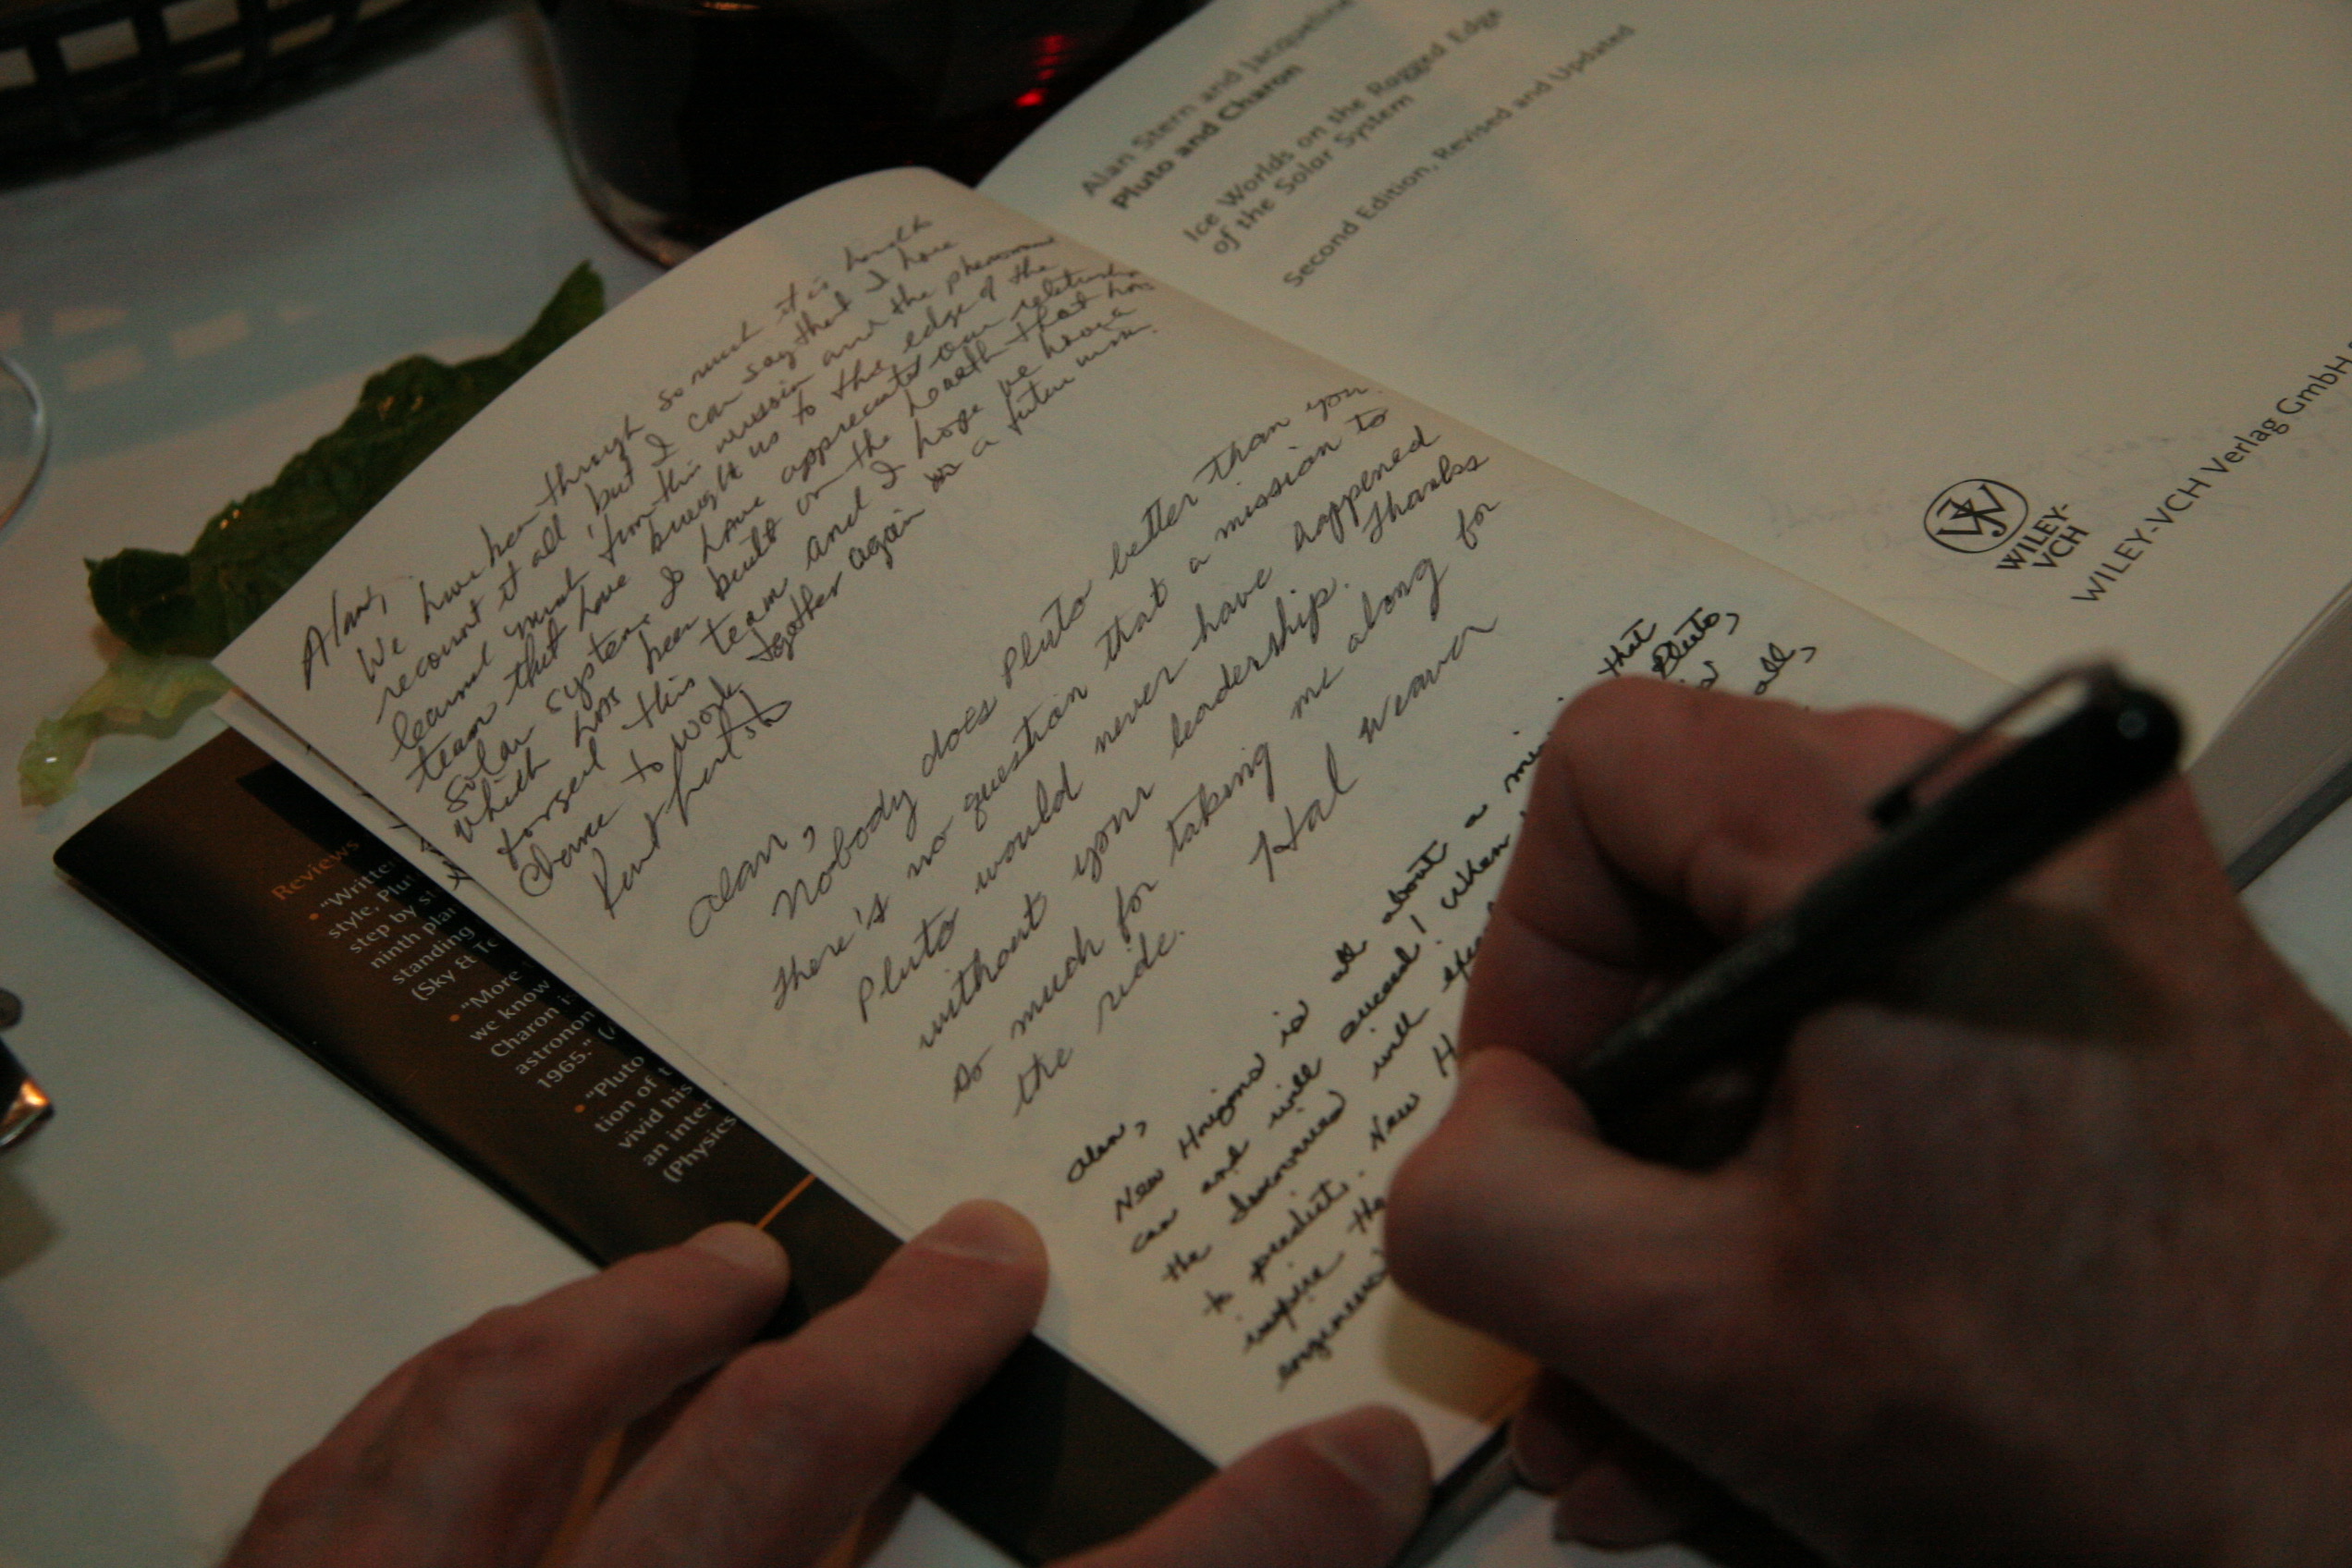 Alan,
We have been through so much it is
recount it all, but I can say that I have
learned much from this mission and the
team that have brought us to the edge of the
solar system. I have appreciated our
which has been built on the hearth that has
forged this team and I hope we have a
chance to work together again on a future
Alan,
Nobody does Pluto better than you.
There's no question that a mission to
Pluto would never have happened
without your leadership. Thanks
so much for taking me along for
the ride.
Hal Weaver
Alan,
New Horizons is all about a that
can and will succeed! When Pluto,
the discoveries will
to predict. New H all,
inspire the
engineers
Alan Stern and Jacqueline
Pluto and Charon
Ice Worlds on the Ragged Edge
of the Solar System
Second Edition, Revised and Updated
WILEY-
VCH
WILEY-VCH Verlag GmbH
Reviews
• "Writte
style, Plu
step by s
ninth pla
standing
(Sky & Te
• "More
we know
Charon i
astronon
1965." (
• "Pluto
tion of t
vivid his
an inter
(Physics